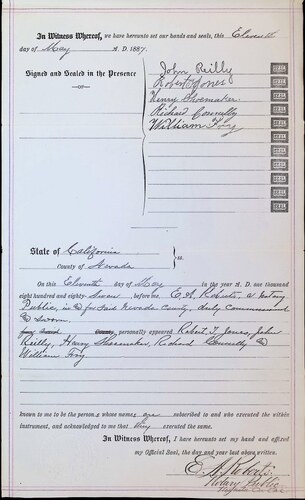 In Witness Whereof, we have hereunto set our hands and seals, this Eleventh
day of May A. D. 1887.
Signed and Sealed in the Presence
—OF—
John Reilly
Robert Jones
Henry Shoemaker
Richard Connelly
William Foig
State of California
County of Nevada } ss.
On this Eleventh day of May in the year A. D. one thousand
eight hundred and eighty-Seven before me, E. A. Roberts, a Notary
Public, in & for said Nevada County, duly Commissioned
& Sworn
County, personally appeared Robert T. Jones, John
Reilly, Henry Shoemaker, Richard Connelly &
William Foig
known to me to be the persons whose names are subscribed to and who executed the within
instrument, and acknowledged to me that they executed the same.
In Witness Whereof, I have hereunto set my hand and affixed
my Official Seal, the day and year last above written.
E. A. Roberts
Notary Public